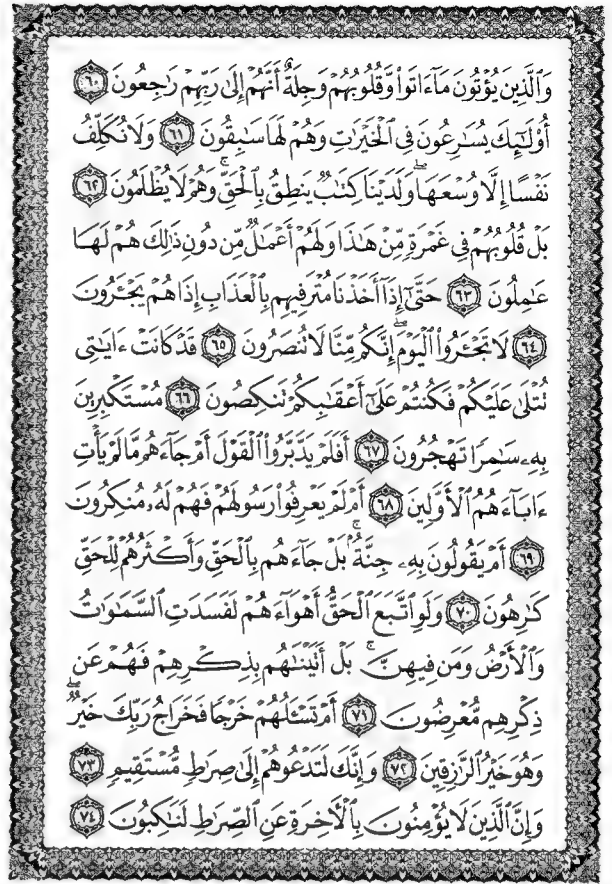 وَٱلَّذِينَ يُؤْتُونَ مَآ ءَاتَوا۟ وَّقُلُوبُهُمْ وَجِلَةٌ أَنَّهُمْ إِلَىٰ رَبِّهِمْ رَٰجِعُونَ ٦٠
أُو۟لَٰٓئِكَ يُسَٰرِعُونَ فِى ٱلْخَيْرَٰتِ وَهُمْ لَهَا سَٰبِقُونَ ٦١ وَلَا نُكَلِّفُ
نَفْسًا إِلَّا وُسْعَهَا ۖ وَلَدَيْنَا كِتَٰبٌ يَنطِقُ بِٱلْحَقِّ ۚ وَهُمْ لَا يُظْلَمُونَ ٦٢
بَلْ قُلُوبُهُمْ فِى غَمْرَةٍ مِّنْ هَٰذَا وَلَهُمْ أَعْمَٰلٌ مِّن دُونِ ذَٰلِكَ هُمْ لَهَا
عَٰمِلُونَ ٦٣ حَتَّىٰٓ إِذَآ أَخَذْنَا مُتْرَفِيهِم بِٱلْعَذَابِ إِذَا هُمْ يَجْـَٔرُونَ
٦٤ لَا تَجْـَٔرُوا۟ ٱلْيَوْمَ ۖ إِنَّكُم مِّنَّا لَا تُنصَرُونَ ٦٥ قَدْ كَانَتْ ءَايَٰتِى
تُتْلَىٰ عَلَيْكُمْ فَكُنتُمْ عَلَىٰٓ أَعْقَٰبِكُمْ تَنكِصُونَ ٦٦ مُسْتَكْبِرِينَ
بِهِۦ سَٰمِرًا تَهْجُرُونَ ٦٧ أَفَلَمْ يَدَّبَّرُوا۟ ٱلْقَوْلَ أَمْ جَآءَهُم مَّا لَمْ يَأْتِ
ءَابَآءَهُمُ ٱلْأَوَّلِينَ ٦٨ أَمْ لَمْ يَعْرِفُوا۟ رَسُولَهُمْ فَهُمْ لَهُۥ مُنكِرُونَ
٦٩ أَمْ يَقُولُونَ بِهِۦ جِنَّةٌۢ ۚ بَلْ جَآءَهُم بِٱلْحَقِّ وَأَكْثَرُهُمْ لِلْحَقِّ
كَٰرِهُونَ ٧٠ وَلَوِ ٱتَّبَعَ ٱلْحَقُّ أَهْوَآءَهُمْ لَفَسَدَتِ ٱلسَّمَٰوَٰتُ
وَٱلْأَرْضُ وَمَن فِيهِنَّ ۚ بَلْ أَتَيْنَٰهُم بِذِكْرِهِمْ فَهُمْ عَن
ذِكْرِهِم مُّعْرِضُونَ ٧١ أَمْ تَسْـَٔلُهُمْ خَرْجًا فَخَرَاجُ رَبِّكَ خَيْرٌ ۖ
وَهُوَ خَيْرُ ٱلرَّٰزِقِينَ ٧٢ وَإِنَّكَ لَتَدْعُوهُمْ إِلَىٰ صِرَٰطٍ مُّسْتَقِيمٍ ٧٣
وَإِنَّ ٱلَّذِينَ لَا يُؤْمِنُونَ بِٱلْأَخِرَةِ عَنِ ٱلصِّرَٰطِ لَنَٰكِبُونَ ٧٤